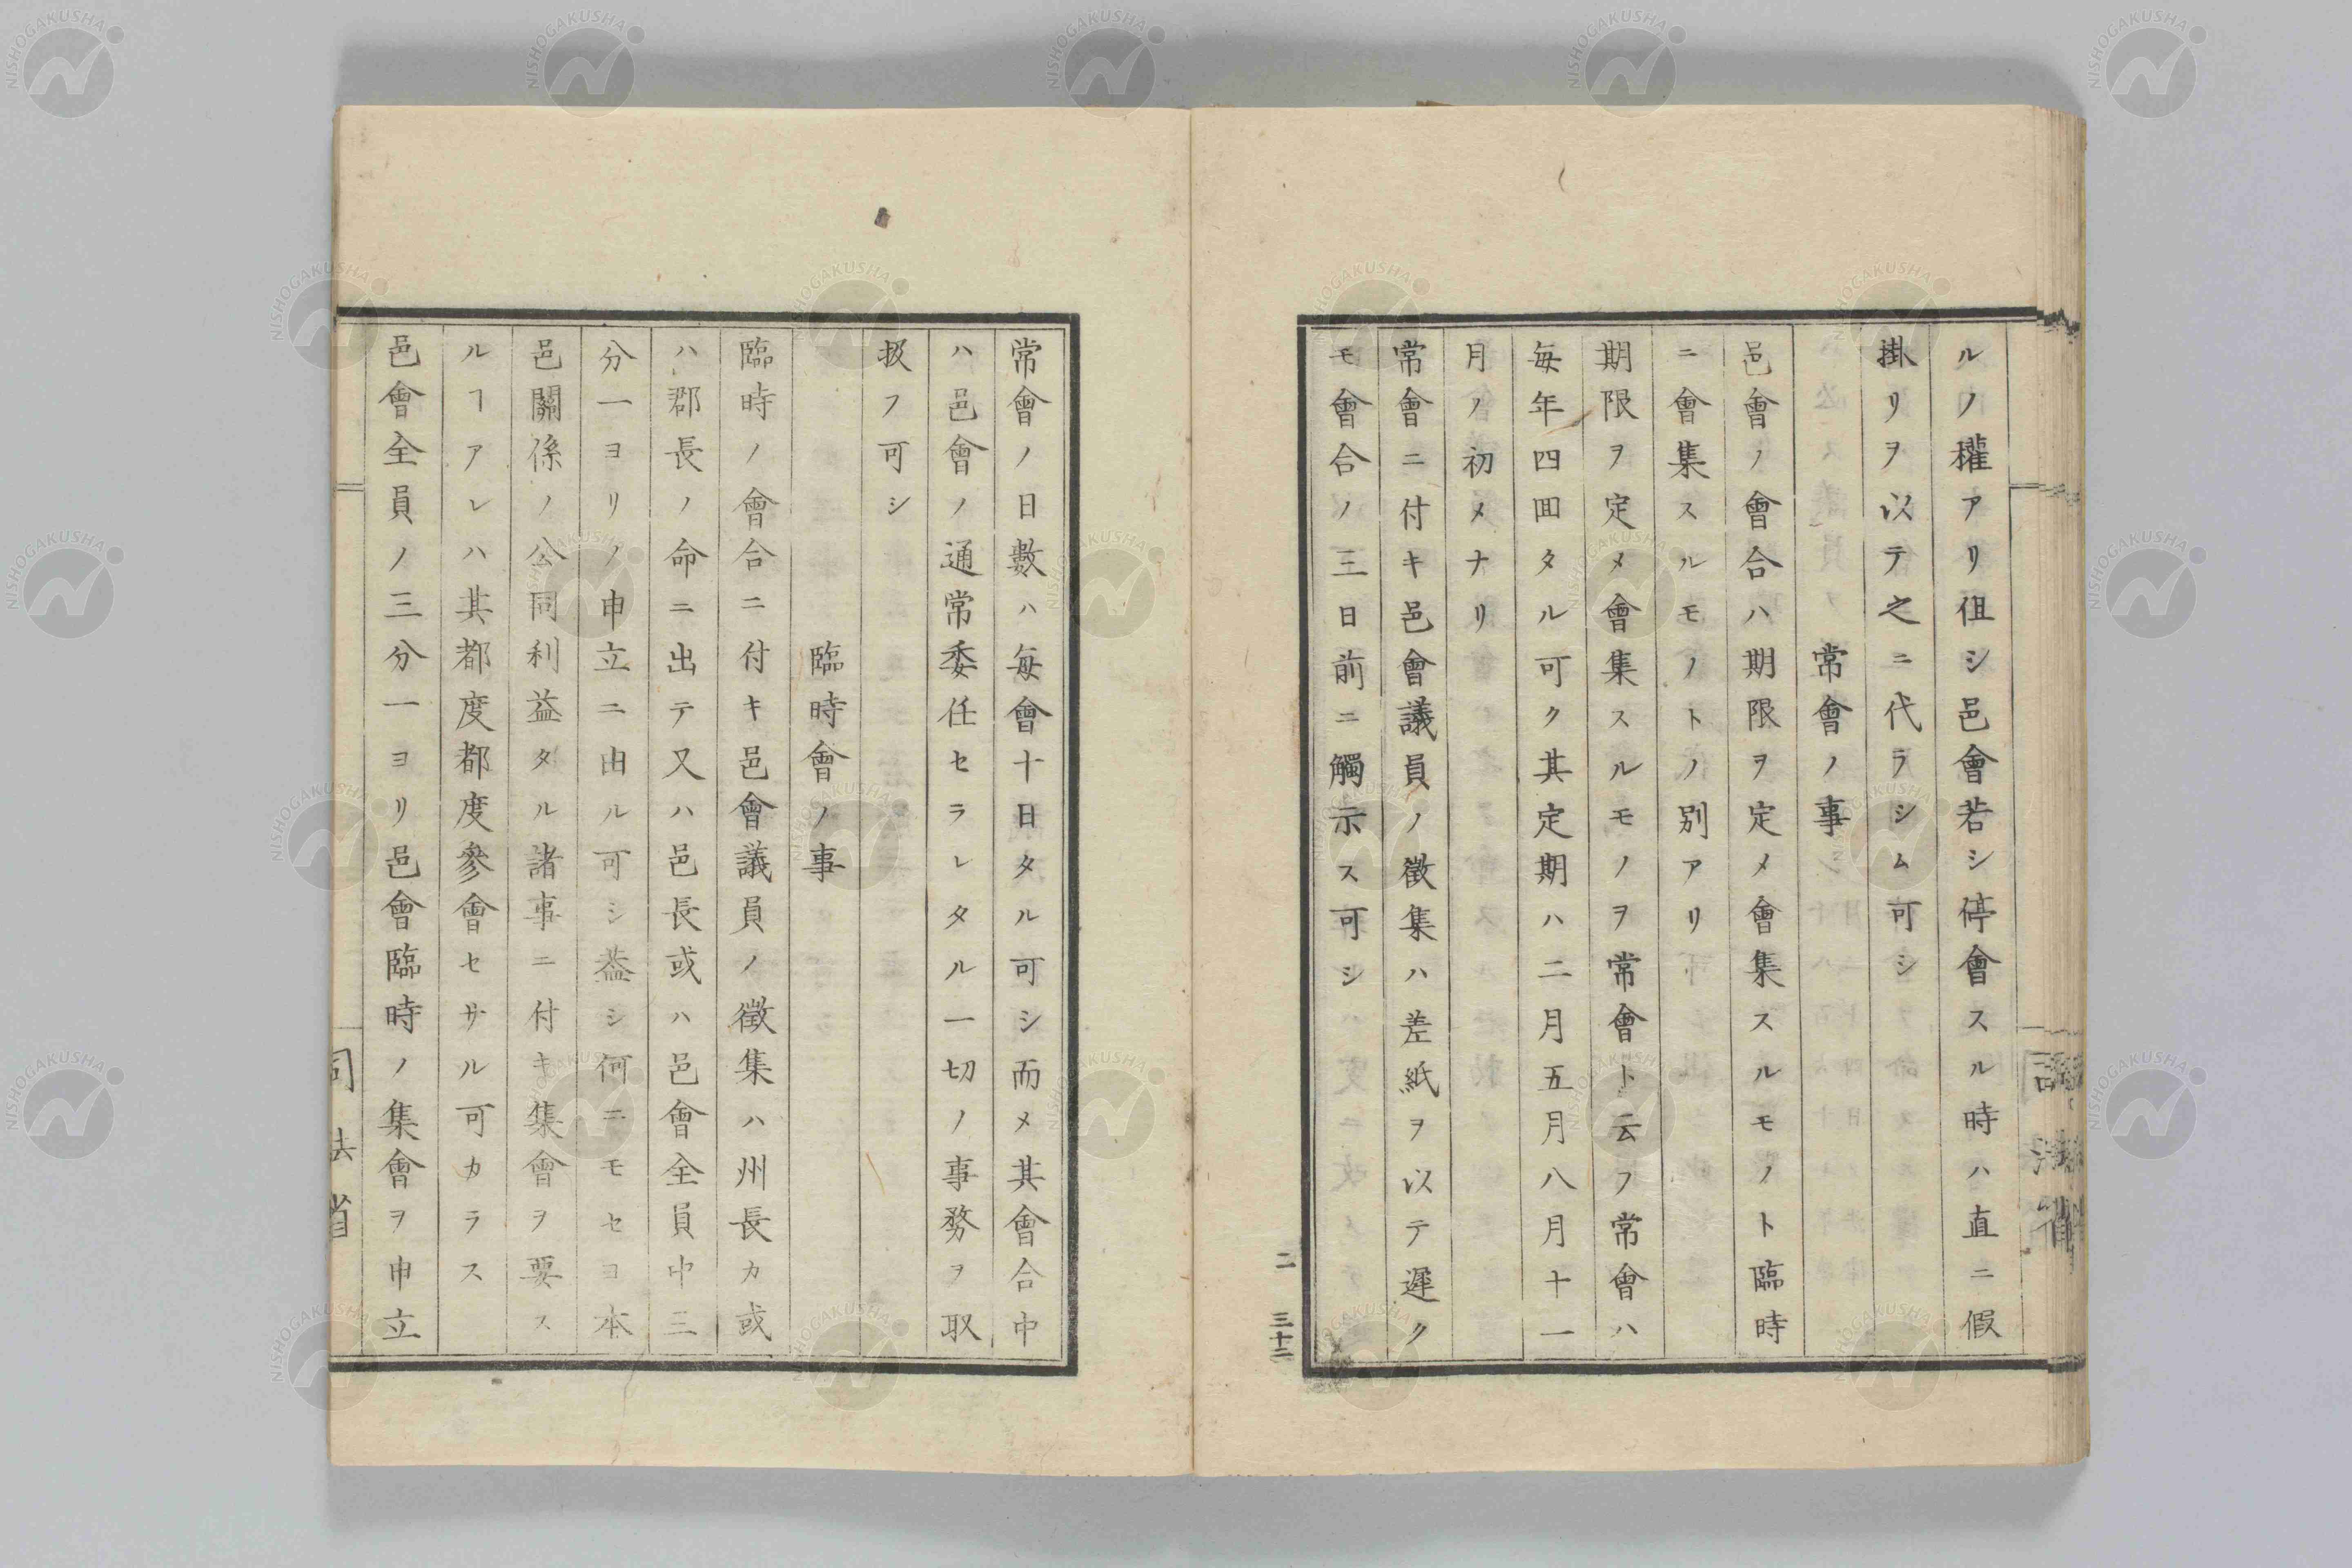 ルノ權アリ但シ邑會若シ停會スル時ハ直ニ假
掛リヲ以テ之ニ代ラシム可シ
常會ノ事
邑會ノ會合ハ期限ヲ定メ會集スルモノト臨時
ニ會集スルモノトノ別アリ
期限ヲ定メ會集スルモノヲ常會ト云フ常會ハ
毎年四回タル可ク其定期ハ二月五月八月十一
月ノ初メナリ
常會ニ付キ邑會議員ノ徵集ハ差紙ヲ以テ遲ク
モ會合ノ三日前ニ觸示ス可シ
二 三十二
常會ノ日數ハ毎會十日タル可シ而メ其會合中
ハ邑會ノ通常委任セラレタル一切ノ事務ヲ取
扱フ可シ
臨時會ノ事
臨時ノ會合ニ付キ邑會議員ノ徵集ハ州長カ或
ハ郡長ノ命ニ出テ又ハ邑長或ハ邑會全員中三
分一ヨリノ申立ニ由ル可シ葢シ何ニモセヨ本
邑關係ノ公同利益タル諸事ニ付キ集會ヲ要ス
ルヿアレハ其都度都度參會セサル可カラス
邑會全員ノ三分一ヨリ邑會臨時ノ集會ヲ申立
司法省
NISHOGAKUSHA